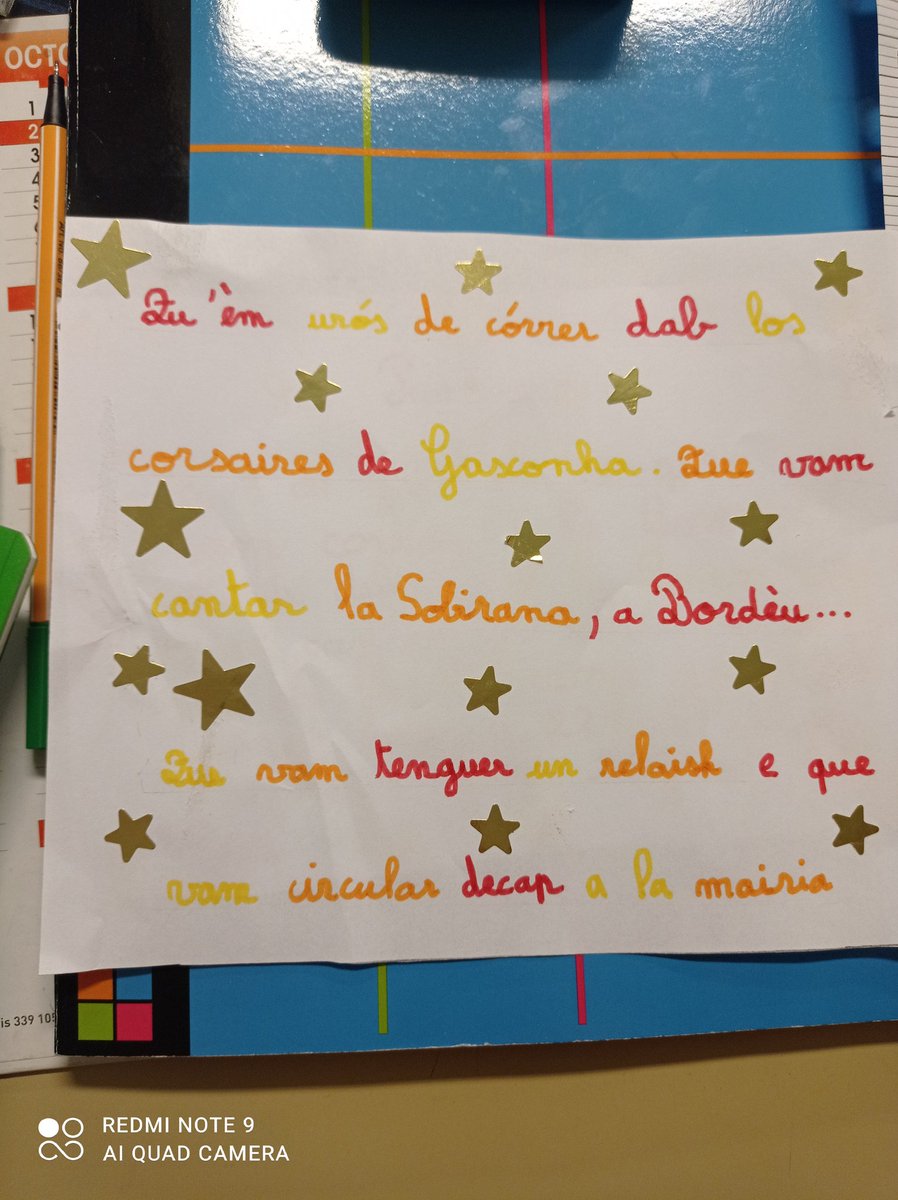 OCTO
1
2
3
4
5
Qu'èm urós de córrer dab los
corsaires de Gasconha. Que vam
cantar la Sobirana, a Bordèu...
Que vam tenguer un relaish e que
vam circular decap a la mairia
is 339 105
REDMI NOTE 9
AI QUAD CAMERA